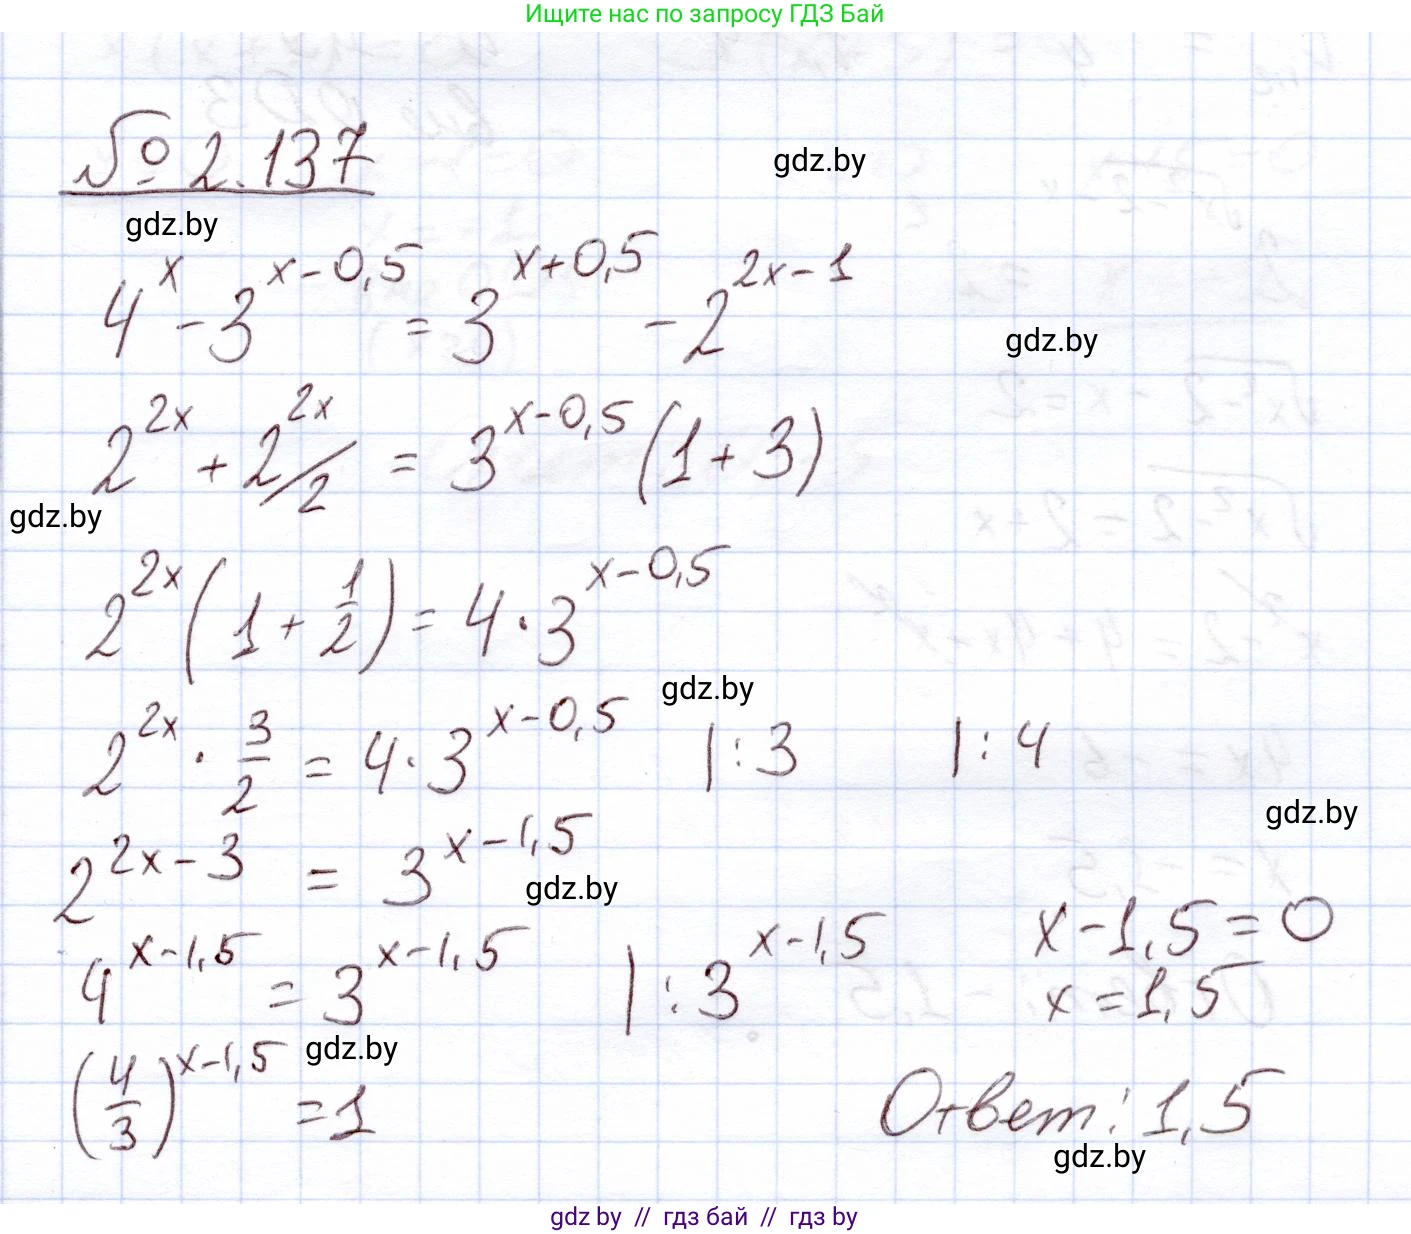 Ищите нас по запросу ГДЗ Бай
№ 2.137
gdz.by
gdz.by
4^x - 3^(x-0,5) = 3^(x+0,5) - 2^(2x-1)
gdz.by
2^(2x) + 2^(2x)/2 = 3^(x-0,5) (1+3)
gdz.by
2^(2x) (1 + 1/2) = 4·3^(x-0,5)
gdz.by
2^(2x) · 3/2 = 4·3^(x-0,5) |:3 |:4
gdz.by
2^(2x-3) = 3^(x-1,5)
gdz.by
4^(x-1,5) = 3^(x-1,5) |:3^(x-1,5)
(4/3)^(x-1,5) = 1
gdz.by
x-1,5=0
x=1,5
Ответ: 1,5
gdz.by
gdz by // гдз бай // гдз by